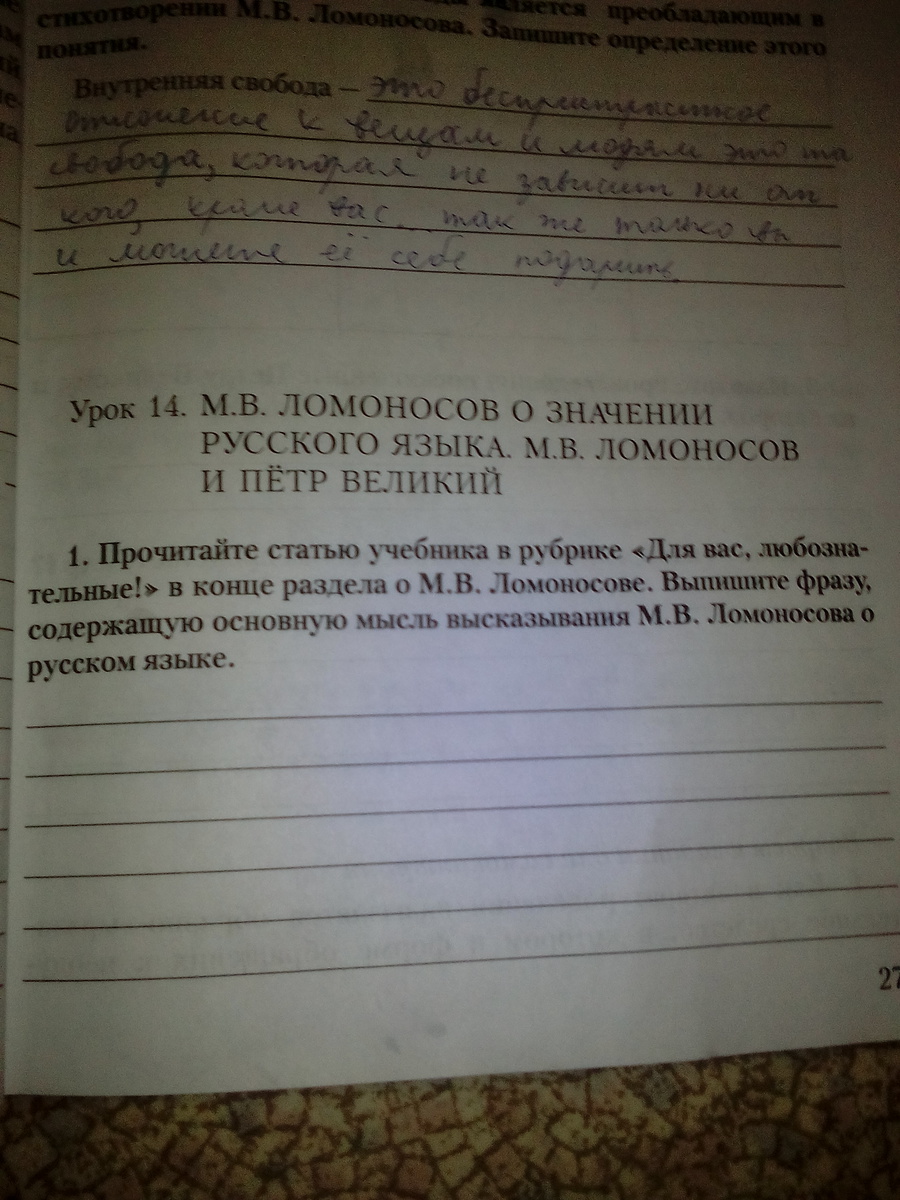 является преобладающим в
стихотворении М.В. Ломоносова. Запишите определение этого
понятия.
Внутренняя свобода – это беспристрастное
отношение к вещам и людям это та
свобода, которая не зависит ни от
кого, кроме вас, так же только вы
и можете её себе подарить.
Урок 14. М.В. ЛОМОНОСОВ О ЗНАЧЕНИИ
РУССКОГО ЯЗЫКА. М.В. ЛОМОНОСОВ
И ПЁТР ВЕЛИКИЙ
1. Прочитайте статью учебника в рубрике «Для вас, любозна-
тельные!» в конце раздела о М.В. Ломоносове. Выпишите фразу,
содержащую основную мысль высказывания М.В. Ломоносова о
русском языке.
27